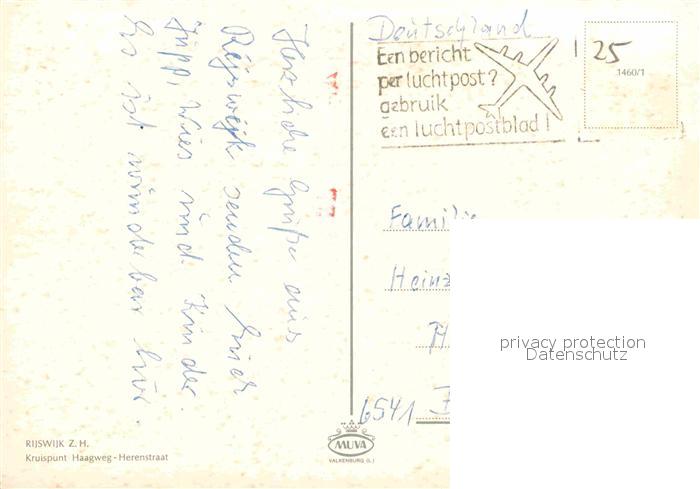 Herzliche Grüße aus
Reijswijk senden Euch
Jupp, Wies und Kinder.
Es ist wunderbar hier.
Deutschland
Een bericht
per luchtpost?
gebruik
een luchtpostblad!
25
1460/1
Familie
Heinz
6541
privacy protection
Datenschutz
RIJSWIJK Z. H.
Kruispunt Haagweg - Herenstraat
MUVA
VALKENBURG (L.)